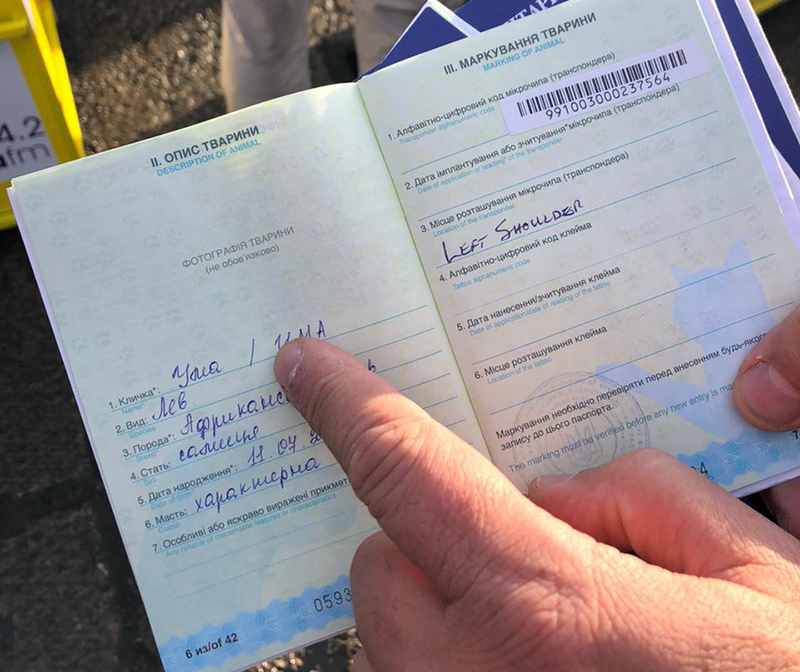 4.2
fm
II. ОПИС ТВАРИНИ
DESCRIPTION OF ANIMAL
ФОТОГРАФІЯ ТВАРИНИ
(не обов'язково)
1. Кличка*: Ума /
Name
2. Вид: Лев
Species
3. Порода*:
Breed
4. Стать:
Sex
5. Дата народження*: 11.07.2
Date of birth
6. Масть: характерна
Colour
7. Особливі або яскраво виражені прикмет
Any notable or discernable features or characteristics
0593
6 из/of 42
III. МАРКУВАННЯ ТВАРИНИ
MARKING OF ANIMAL
1. Алфавітно-цифровий код мікрочипа (транспондера)
Transponder alphanumeric code
991003000237564
2. Дата імплантування або зчитування*мікрочипа (транспондера)
Date of application or reading* of the transponder
3. Місце розташування мікрочипа (транспондера)
Location of the transponder
LEFT SHOULDER
4. Алфавітно-цифровий код клейма
Tattoo alphanumeric code
5. Дата нанесення/зчитування клейма
Date of application/date of reading of the tattoo
6. Місце розташування клейма
Location of the tattoo
Маркування необхідно перевіряти перед внесенням будь-якого
запису до цього паспорта.
The marking must be verified before any new entry is